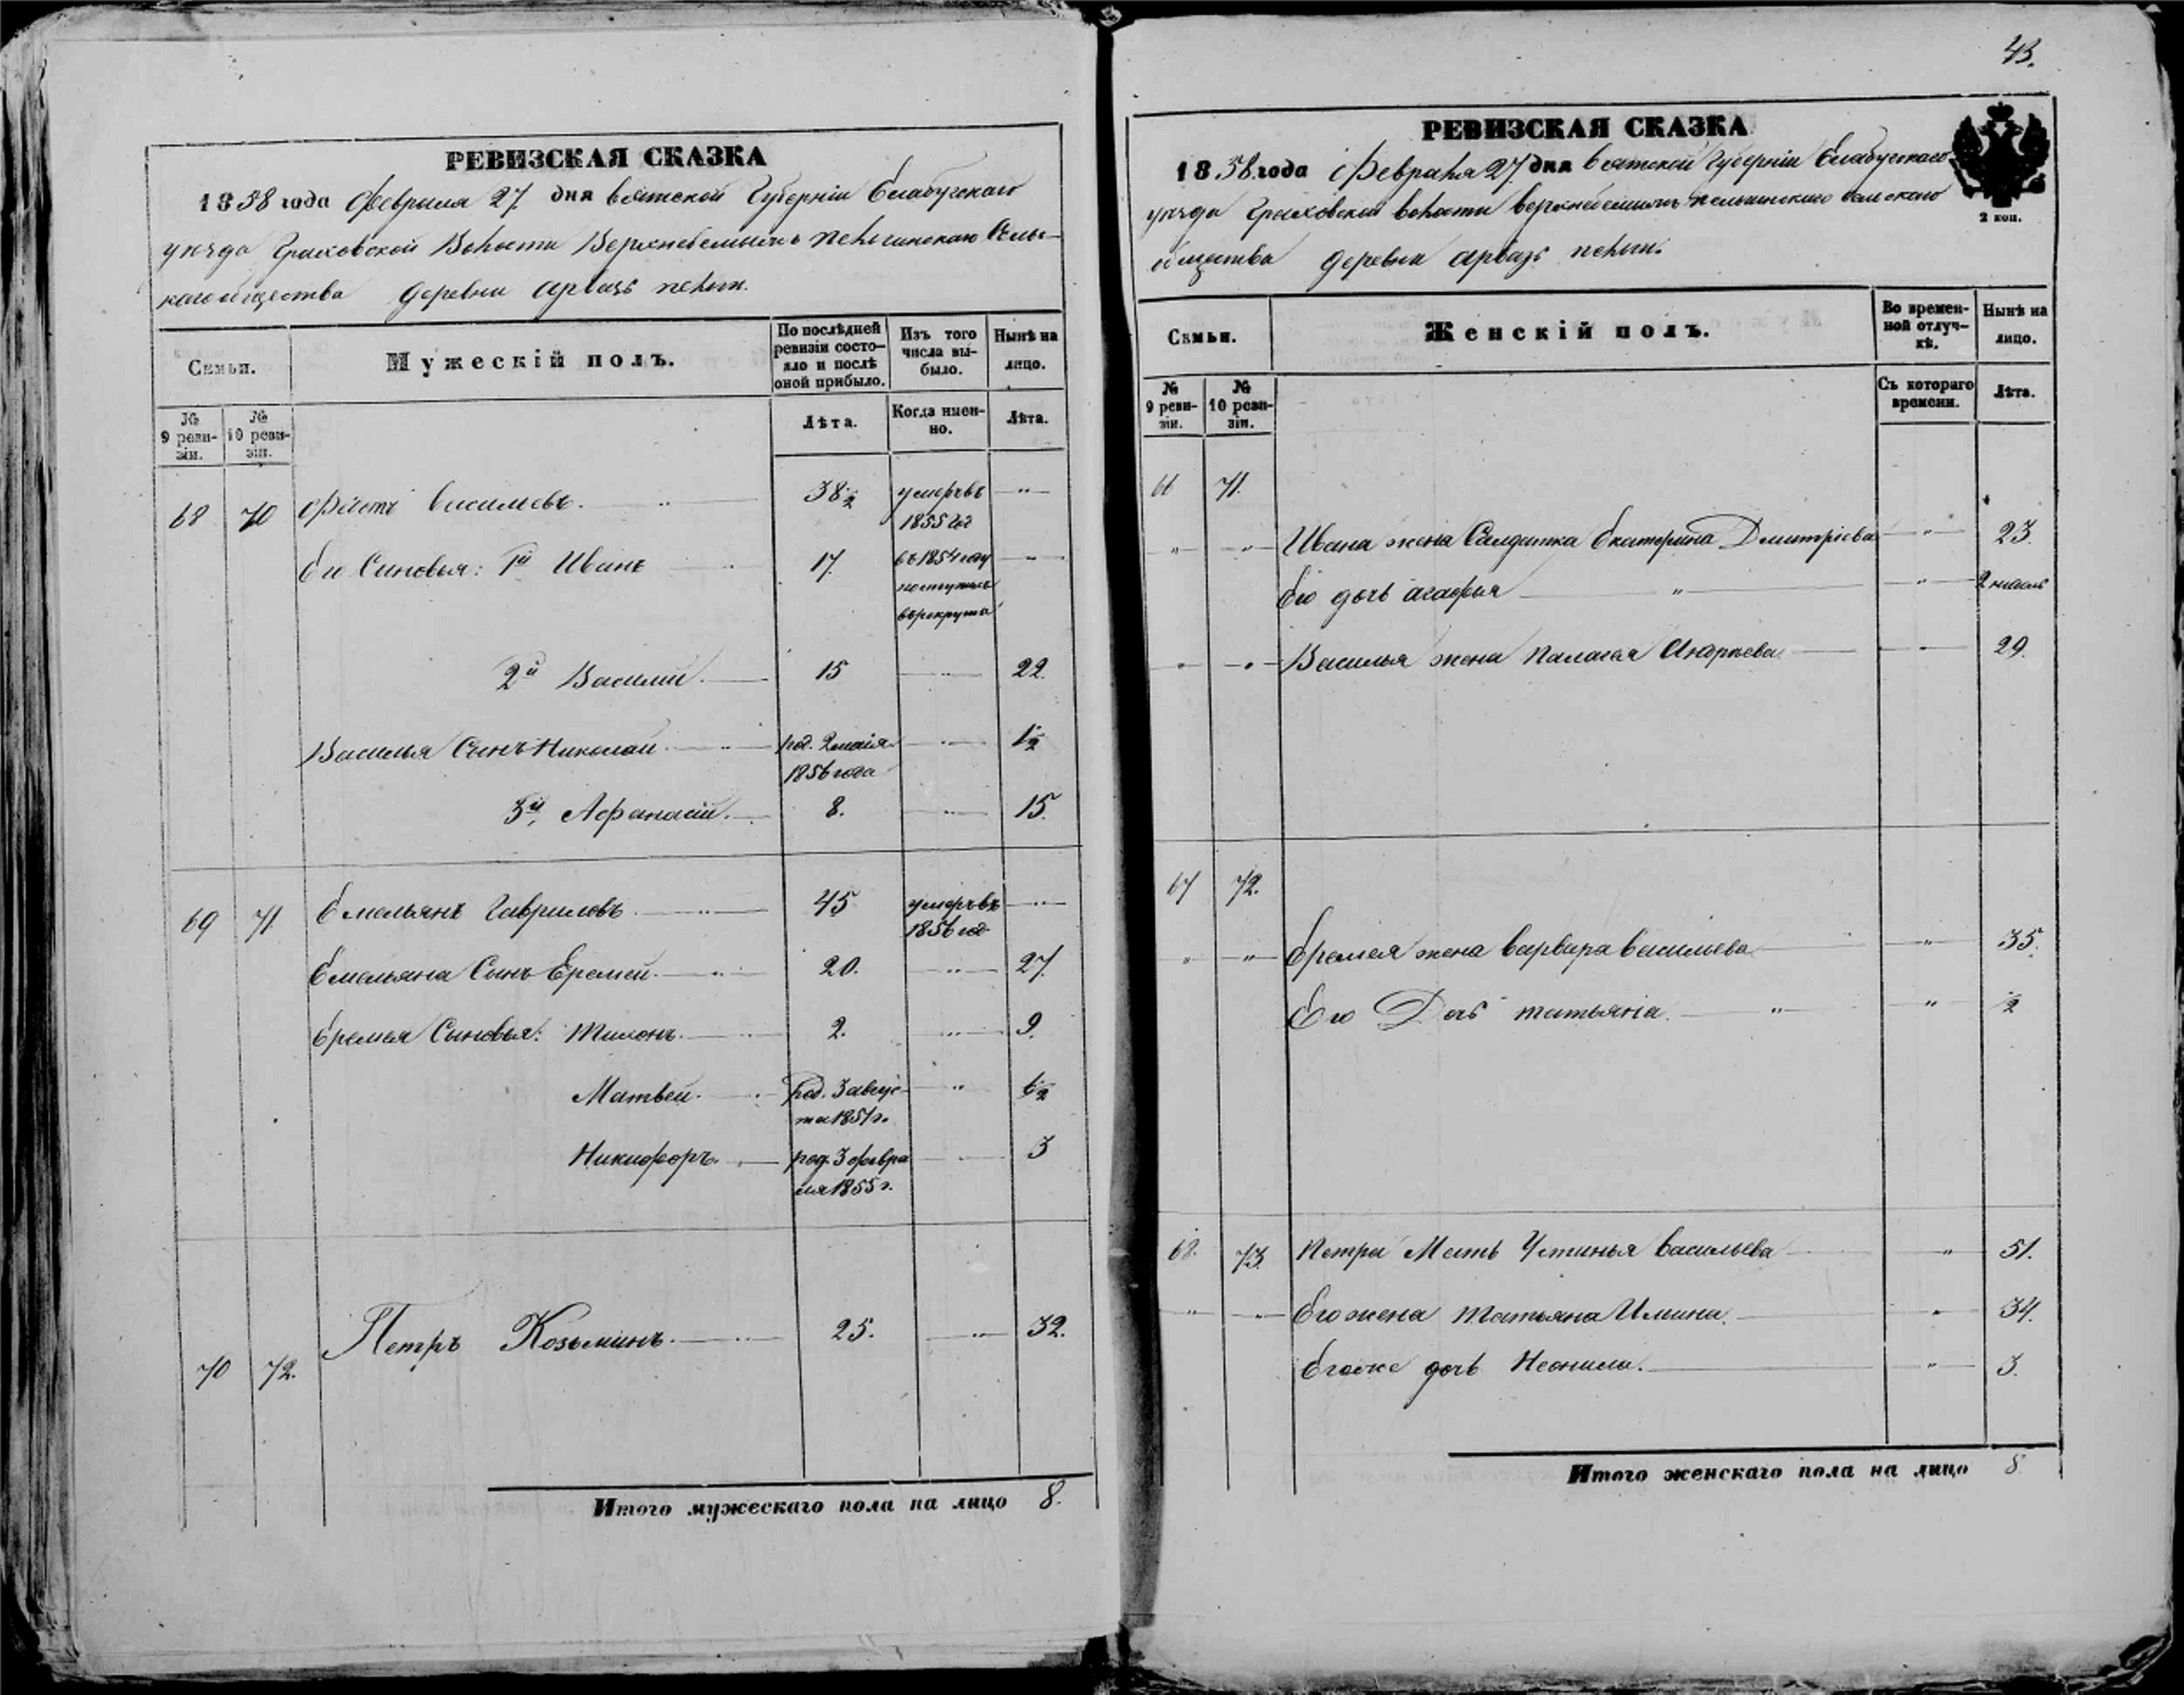 РЕВИЗСКАЯ СКАЗКА
1858 года Февраля 27. дня Вятской Губернiи Елабугскаго
уезда Граховской Волости Верхнебемыжъ пельгинскаго Сельс-
каго общества деревни арвазь пельги.
Семьи.
Мужескій полъ.
По послѣдней ревизіи состо-
яло и послѣ
оной прибыло.
Изъ того
числа вы-
было.
Нынѣ на
лицо.
№
9 реви-
зіи.
№
10 реви-
зіи.
Лѣта.
Когда имен-
но.
Лѣта.
68 70 Васильевъ. 38 1/2 умеръ въ
1855
Его Сыновья: 1й Иванъ 17. въ 1854 году
поступилъ
в рекруты
2й Василий. 15 22.
Василья Сынъ Николай. род. 2 маiя 1 1/2
1856 года
3й, Афанасiй. 8. 15.
69 71 Емельянъ Гавриловъ 45 умеръ въ
1856 год.
Емельяна Сынъ Еремей. 20. 27.
Еремея Сыновья: Тихонъ. 2. 9.
Матвей. Род. 3 авгус-
та 1851 г.
Никифоръ. род. 3 февра 3
ля 1855 г.
70 72. Петръ Козьминъ. 25. 32.
Итого мужескаго пола на лицо 8.
43.
РЕВИЗСКАЯ СКАЗКА
1858. года Февраля 27. дня Вятской Губернiи Елабугскаго
уезда Граховской волости верхнебемыжъ пельгинскаго сельскаго
общества деревни арвазь пельги.
2 коп.
Семьи.
Женскій полъ.
Во времен-
ной отлуч-
кѣ.
Нынѣ на
лицо.
№
9 реви-
зіи.
№
10 реви-
зіи.
Съ котораго
времени.
Лѣта.
66 71.
Ивана жена Салдатка Екатерина Дмитрiева 23.
Его дочь агафья 2
Василья жена палагея 29.
67 72.
Еремея жена варвара васильева 35.
Его Дочь татьяна. 1/2
68. 73. Петра Мать Устинья васильева 51.
Его жена татьяна Ильина. 34.
Егоже дочь Неонила. 3.
Итого женскаго пола на лицо 8